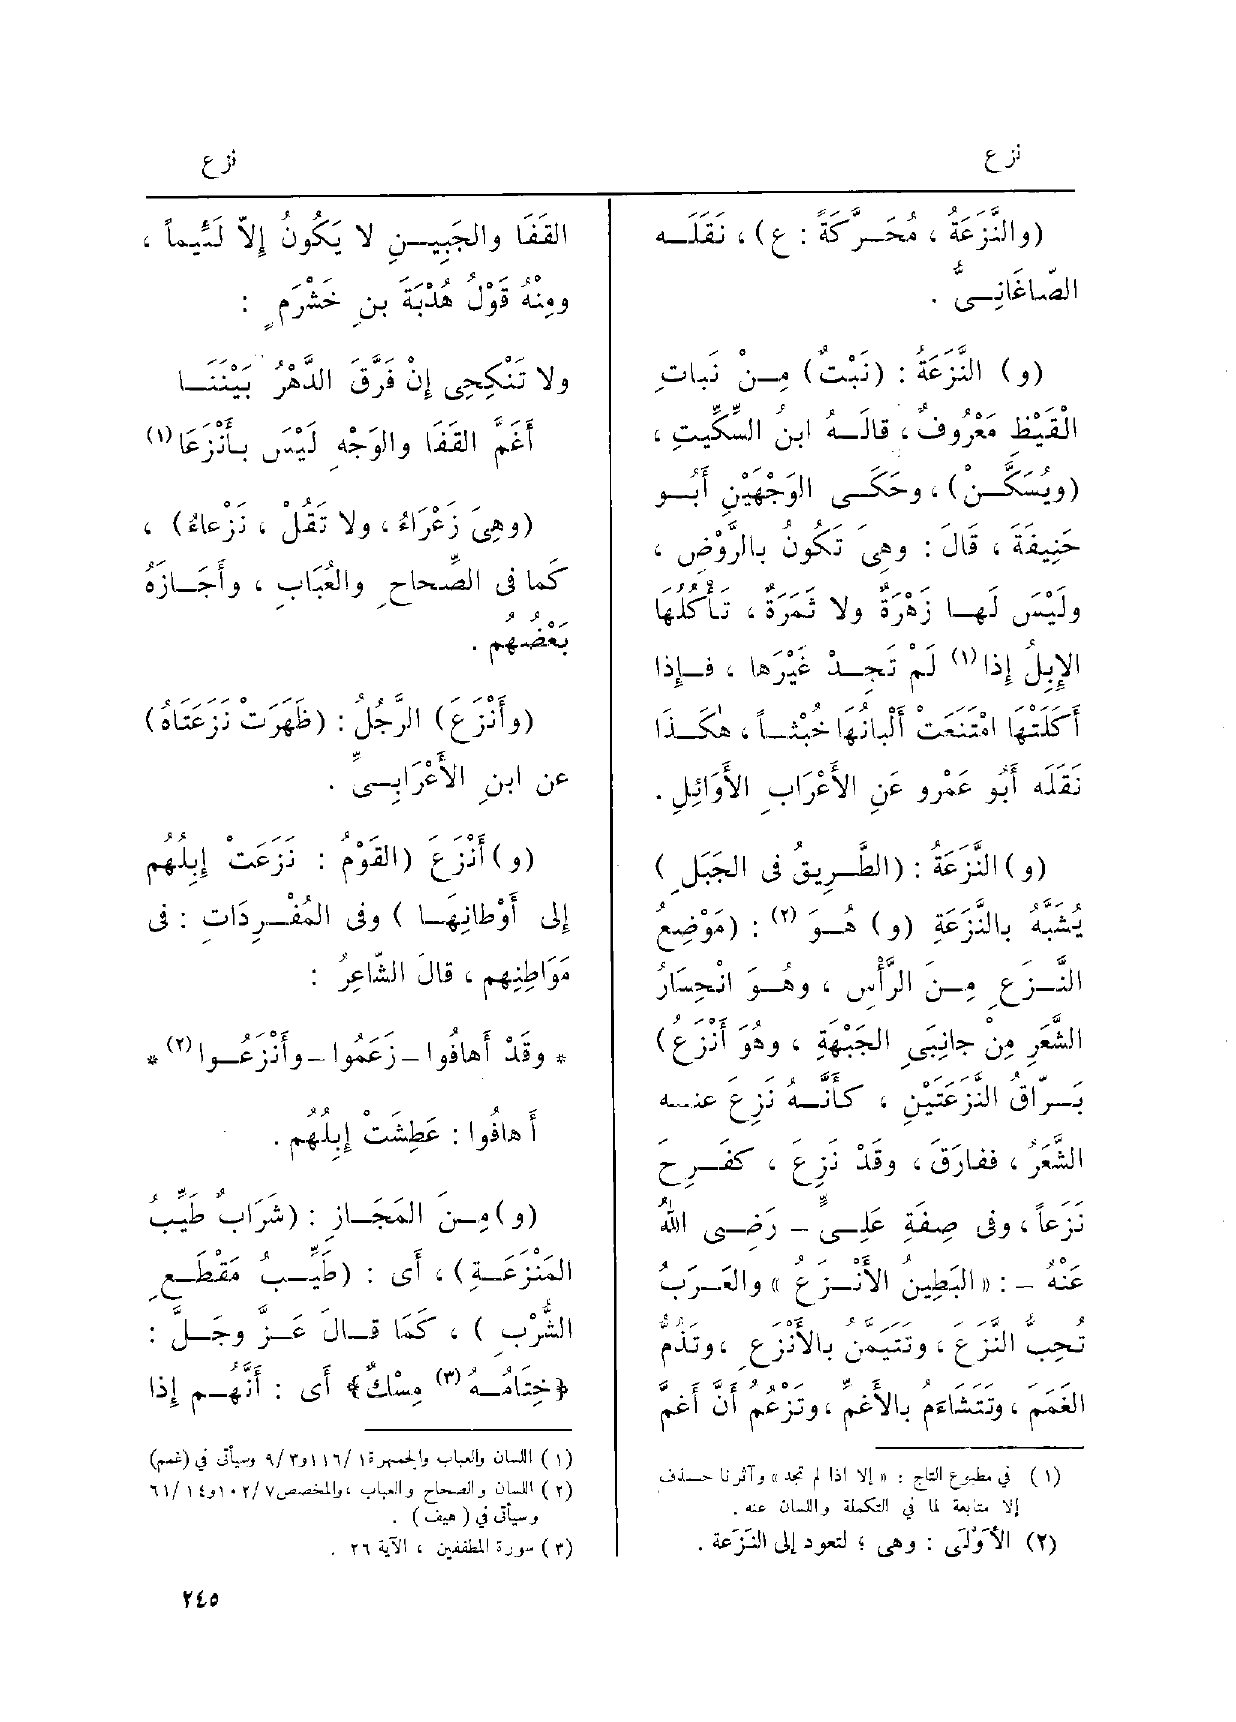 نزع
نزع
(والنَّزَعَةُ ، مُحَـرَّكَةً : ع) ، نَقَلَـه
الصّاغَانِـىُّ .
(و) النَّزَعَةُ : (نَبْتٌ) مِـنْ نَباتِ
الْقَيْظِ مَعْرُوفٌ ، قالَـهُ ابنُ السِّكِّيتِ ،
(ويُسَكَّـنُ) ، وحَكَـى الوَجْهَيْنِ أَبُـو
حَنِيفَةَ ، قالَ : وهِىَ تَكُونُ بالرَّوْضِ ،
ولَيْسَ لَهـا زَهْرَةٌ ولا ثَمَرَةٌ ، تَـأْكُلُها
الإِبِلُ إِذا (١) لَمْ تَجِـدْ غَيْرَها ، فـإِذا
أَكَلَتْها امْتَنَعَت أَلْبانُها خُبْثـاً ، هٰكَـذا
نَقَلَه أَبُو عَمْرو عَنِ الأَعْرَابِ الأَوَائِلِ .
(و) النَّزَعَةُ : (الطَّـرِيقُ فى الجَبَلِ)
يُشَبَّهُ بالنَّزَعَةِ (و) هُـوَ (٢) : (مَوْضِعُ
النَّـزَعِ مِـنَ الرَّأْسِ ، وهُـوَ انْحِسَارُ
الشَّعَرِ مِنْ جانِبَىِ الجَبْهَةِ ، وهُوَ أَنْزَعُ)
بَـرّاقُ النَّزَعَتَيْنِ ، كأَنَّـهُ نَزِعَ عنـه
الشَّعَرُ ، ففارَقَ ، وقَدْ نَزِعَ ، كفَـرِحَ
نَزَعاً ، وفى صِفَةِ عَلِـىٍّ - رَضِـى اللهُ
عَنْهُ - : «البَطِينُ الأَنْـزَعُ» والعَـرَبُ
تُحِبُّ النَّزَعَ ، وتَتَيَمَّنُ بالأَنْزَعِ ، وتَذُمُّ
الغَمَمَ ، وتَتَشاءَمُ بالأَغَمِّ ، وتَزْعُمُ أَنَّ أَغَمَّ
(١) في مطبوع التاج : « إلا اذا لم تجد » وآثرنا حـذف
إلا متابعة لما في التكملة واللسان عنه .
(٢) الأَوْلَى : وهى ؛ لتعود إلى النَّزَعة .
القَفَا والجَبِيـنِ لا يَكُونُ إِلاّ لَئِيماً ،
ومِنْهُ قَوْلُ هُدْبَةَ بنِ خَشْرَمٍ :
ولا تَنْكِحِى إِنْ فَرَّقَ الدَّهْرُ بَيْنَنَـا
أَغَمَّ القَفَا والوَجْهِ لَيْسَ بـأَنْزَعَا (١)
(وهِىَ زَعْرَاءُ ، ولا تَقُلْ ، نَزْعاءُ) ،
كَما فى الصِّحاحِ والعُبَابِ ، وأَجَـازَهُ
بَعْضُهم .
(وأَنْزَعَ) الرَّجُلُ : (ظَهَرَتْ نَزَعَتَاهُ)
عن ابنِ الأَعْرَابِـىِّ .
(و) أَنْزَعَ (القَوْمُ : نَزَعَتْ إِبِلُهُم
إلى أَوْطانِهَـا) وفى المُفْـرَدَاتِ : فى
مَوَاطِنِهم ، قالَ الشّاعِرُ :
* وقَدْ أَهافُوا - زَعَمُوا - وأَنْزَعُـوا (٢) *
أَهافُوا : عَطِشَتْ إِبِلُهُم .
(و) مِـنَ المَجَـازِ : (شَرَابٌ طَيِّبُ
المَنْزَعَـةِ) ، أَى : (طَيِّـبُ مَقْطَـعِ
الشُّرْبِ) ، كَمَا قـالَ عَـزَّ وجَـلَّ :
﴿خِتَامُـهُ (٣) مِسْكٌ﴾ أَى : أَنَّهُـم إِذا
(١) اللسان والعباب والجمهرة ١/ ١١٦ و ٣/ ٩ وسيأتى في (غمم)
(٢) اللسان والصحاح والعباب ، والمخصص ٧/ ١٠٢ و ١٤/ ٦١
وسيأتى في (هيف) .
(٣) سورة المطففين ، الآية ٢٦ .
٢٤٥